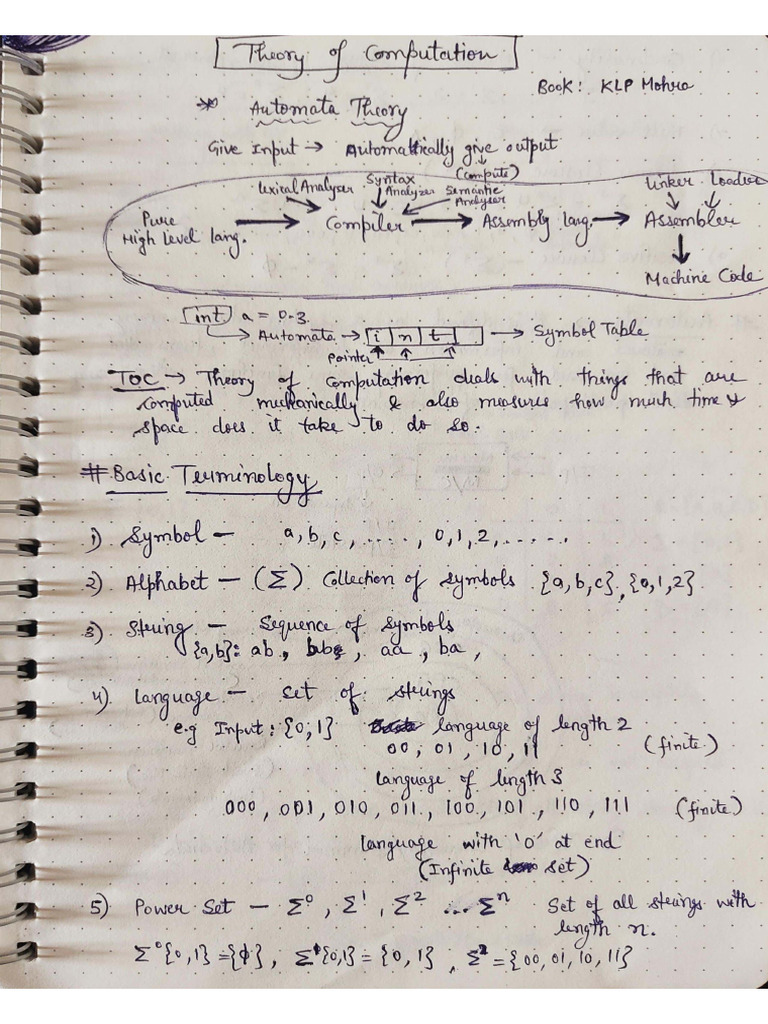 Theory of Computation
Book: KLP Mohra
Automata Theory
Give Input → Automatically give output
(compute)
Lexical Analyser Syntax Analyzer Semantic Analyser Linker Loader
Pure High Level lang. → Compiler → Assembly lang. → Assembler
Machine Code
int a = 0.3
→ Automata → i n t → Symbol Table
Pointer
TOC → Theory of computation deals with things that are
computed mechanically & also measures how much time &
space does it take to do so.
# Basic Terminology
1) Symbol – a, b, c, ....., 0, 1, 2, ......
2) Alphabet – (Σ) Collection of symbols {a,b,c}, {0,1,2}
3) String – Sequence of symbols
{a,b}: ab, , aa, ba,
4) Language – Set of strings
e.g Input: {0,1} language of length 2
00, 01, 10, 11 (finite)
language of length 3
000, 001, 010, 011, 100, 101, 110, 111 (finite)
language with '0' at end
(Infinite set)
5) Power Set – Σ⁰, Σ¹, Σ² ... Σⁿ Set of all strings with
length n.
Σ⁰{0,1} = {ϕ}, Σ¹{0,1} = {0,1}, Σ² = {00, 01, 10, 11}